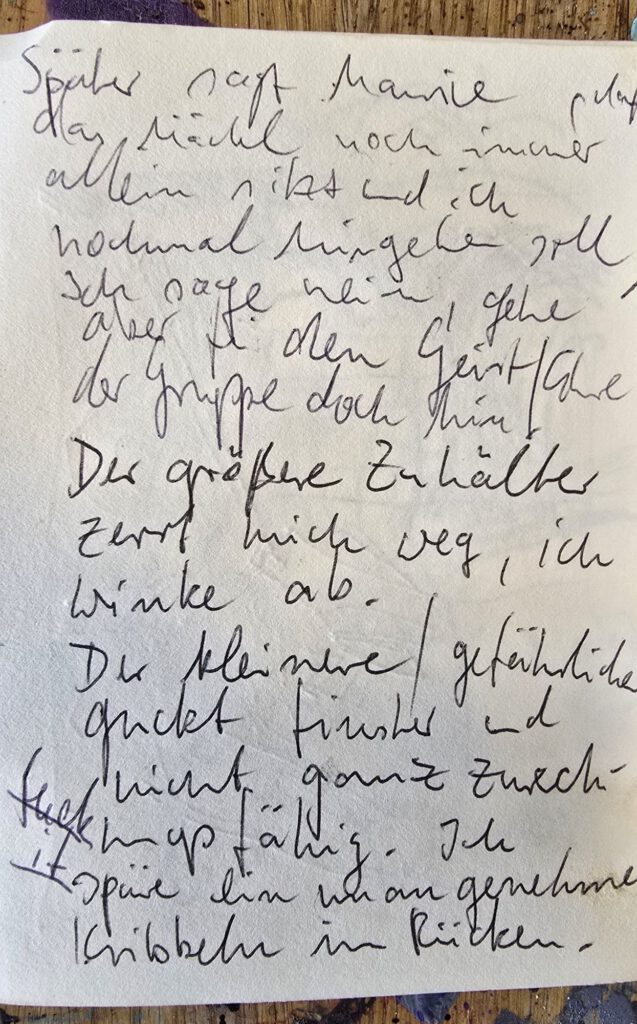 Später sagt Maurice
das Mädel noch immer
allein sitzt und ich
nochmal hingehen soll,
Ich sage nein, gehe
aber für den Geist/
der Gruppe doch hin.
Der größere Zuhälter
zerrt mich weg, ich
winke ab.
Der kleinere/gefährliche
guckt finster und
nicht ganz zurech-
nungsfähig. Ich
fuck
it
spüre ein unangenehme
Kribbeln im Rücken.